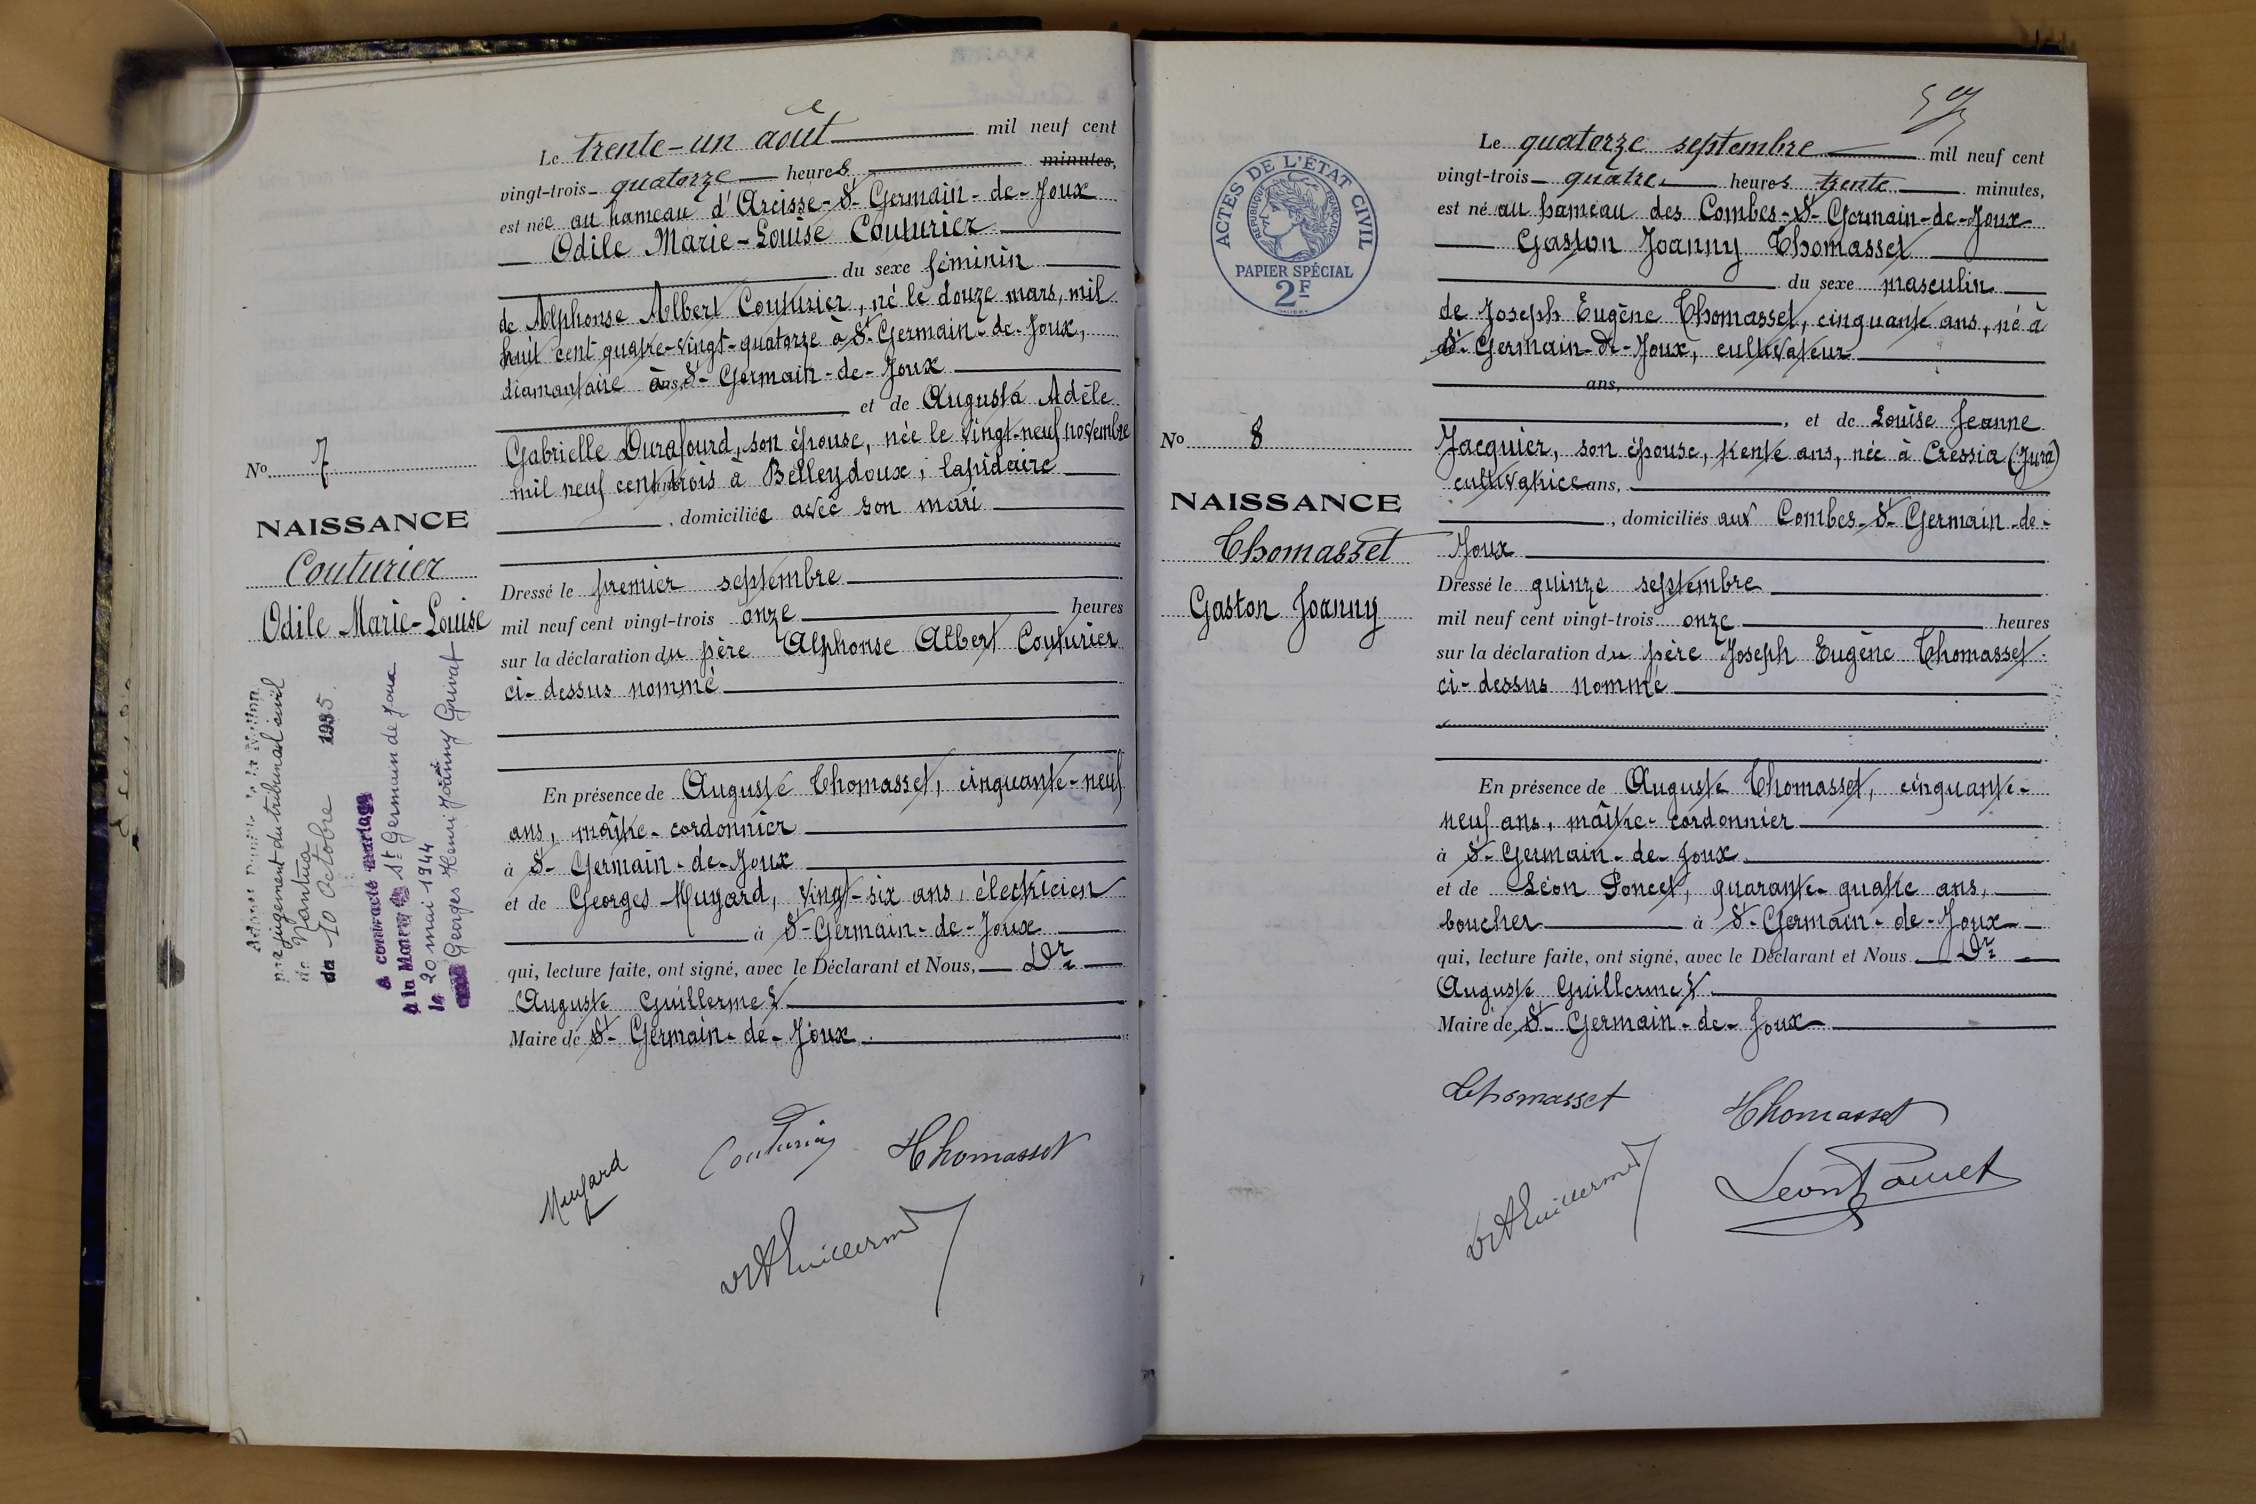 Le trente-un août mil neuf cent
vingt-trois quatorze heures minutes,
est née au hameau d'Arcisse-St-Germain-de-Joux
Odile Marie-Louise Couturier
du sexe féminin
de Alphonse Albert Couturier, né le douze mars, mil
huit cent quatre-vingt-quatorze à St-Germain-de-Joux,
diamantaire à St-Germain-de-Joux
et de Augusta Adèle
Gabrielle Durafourd, son épouse, née le vingt-neuf novembre
mil neuf cent trois à Belleydoux, lapidaire
, domiciliée avec son mari
Dressé le premier septembre
mil neuf cent vingt-trois onze heures
sur la déclaration du père Alphonse Albert Couturier
ci-dessus nommé
En présence de Auguste Thomasset, cinquante-neuf
ans, maître-cordonnier
à St-Germain-de-Joux
et de Georges Mugard, vingt-six ans, électricien
à St-Germain-de-Joux
qui, lecture faite, ont signé, avec le Déclarant et Nous, Dr
Auguste Guillermet
Maire de St-Germain-de-Joux
Mugard
Couturier
Thomasset
Dr A Guillermet
No 7
NAISSANCE
Couturier
Odile Marie-Louise
par jugement du tribunal civil
de Nantua
du 10 Octobre 1935
A contracté mariage
à la Mairie de St Germain de Joux
le 20 mai 1944
Georges Henri Joanny Grivat
57
Le quatorze septembre mil neuf cent
vingt-trois quatre heures trente minutes,
est né au hameau des Combes-St-Germain-de-Joux
Gaston Joanny Thomasset
du sexe masculin
de Joseph Eugène Thomasset, cinquante ans, né à
St-Germain-de-Joux, cultivateur
ans,
, et de Louise Jeanne
Jacquier, son épouse, trente ans, née à Cressia (Jura)
cultivatrice ans,
, domiciliés aux Combes-St-Germain-de-
Joux
Dressé le quinze septembre
mil neuf cent vingt-trois onze heures
sur la déclaration du père Joseph Eugène Thomasset
ci-dessus nommé
En présence de Auguste Thomasset, cinquante-
neuf ans, maître-cordonnier
à St-Germain-de-Joux
et de Léon Poncet, quarante-quatre ans,
boucher à St-Germain-de-Joux
qui, lecture faite, ont signé, avec le Déclarant et Nous Dr
Auguste Guillermet
Maire de St-Germain-de-Joux
Thomasset
Thomasset
Dr A Guillermet
Léon Poncet
ACTES DE L'ÉTAT CIVIL
RÉPUBLIQUE FRANÇAISE
PAPIER SPÉCIAL
2F
No 8
NAISSANCE
Thomasset
Gaston Joanny